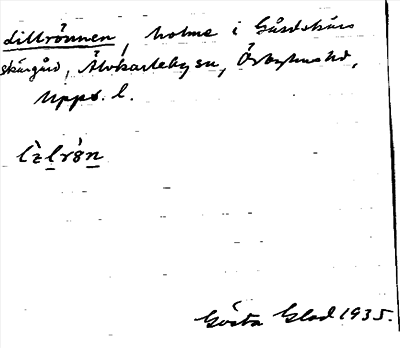 Lillrönnen, holme i Gårdskärs
skärgård, Älvkarleby sn, Örbyhus hd,
Upps. l.
Gösta Glad 1935.